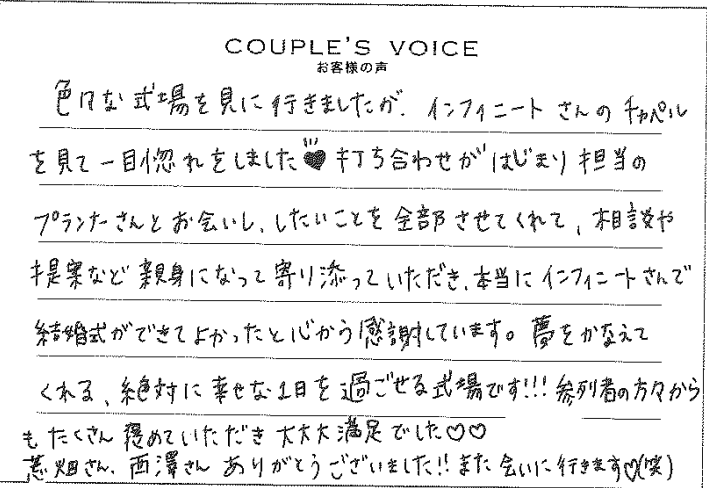 COUPLE'S VOICE
お客様の声
色々な式場を見に行きましたが、インフィニートさんのチャペル
を見て一目惚れをしました♥打ち合わせがはじまり担当の
プランナーさんとお会いし、したいことを全部させてくれて、相談や
提案など親身になって寄り添っていただき、本当にインフィニートさんで
結婚式ができてよかったと心から感謝しています。夢をかなえて
くれる、絶対に幸せな1日を過ごせる式場です!!!参列者の方々から
もたくさん褒めていただき大大大満足でした♡♡
畑さん、西澤さんありがとうございました!!また会いに行きます♡(笑)